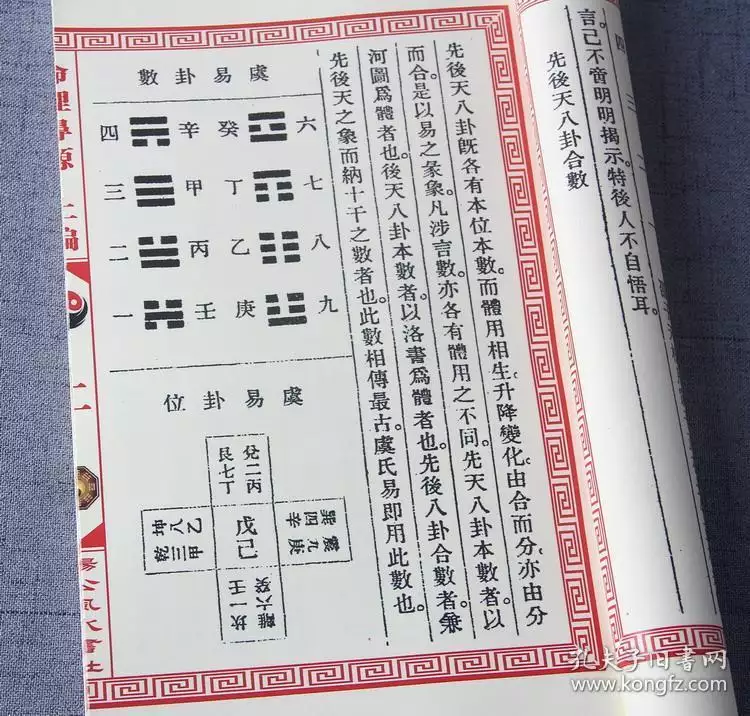 四 三 二
言。己不啻明明揭示。特後人不自悟耳。
先後天八卦合數
先後天八卦旣各有本位本數。而體用相生。升降變化。由合而分。亦由分
而合。是以易之彖象。凡涉言數。亦各有體用之不同。先天八卦本數者。以
河圖爲體者也。後天八卦本數者。以洛書爲體者也。先後八卦合數者。兼
先後天之象而納十干之數者也。此數相傳最古。虞氏易即用此數也。
虞易卦數
六 癸 辛 四
七 丁 甲 三
八 乙 丙 二
九 庚 壬 一
虞易卦位
兌二丙
艮七丁
乙八坤
甲三乾
戊己
巽四辛
震九庚
離六癸
坎一壬
命理尋源 二編
二
楊公風水書社
孔夫子旧书网
www.kongfz.com